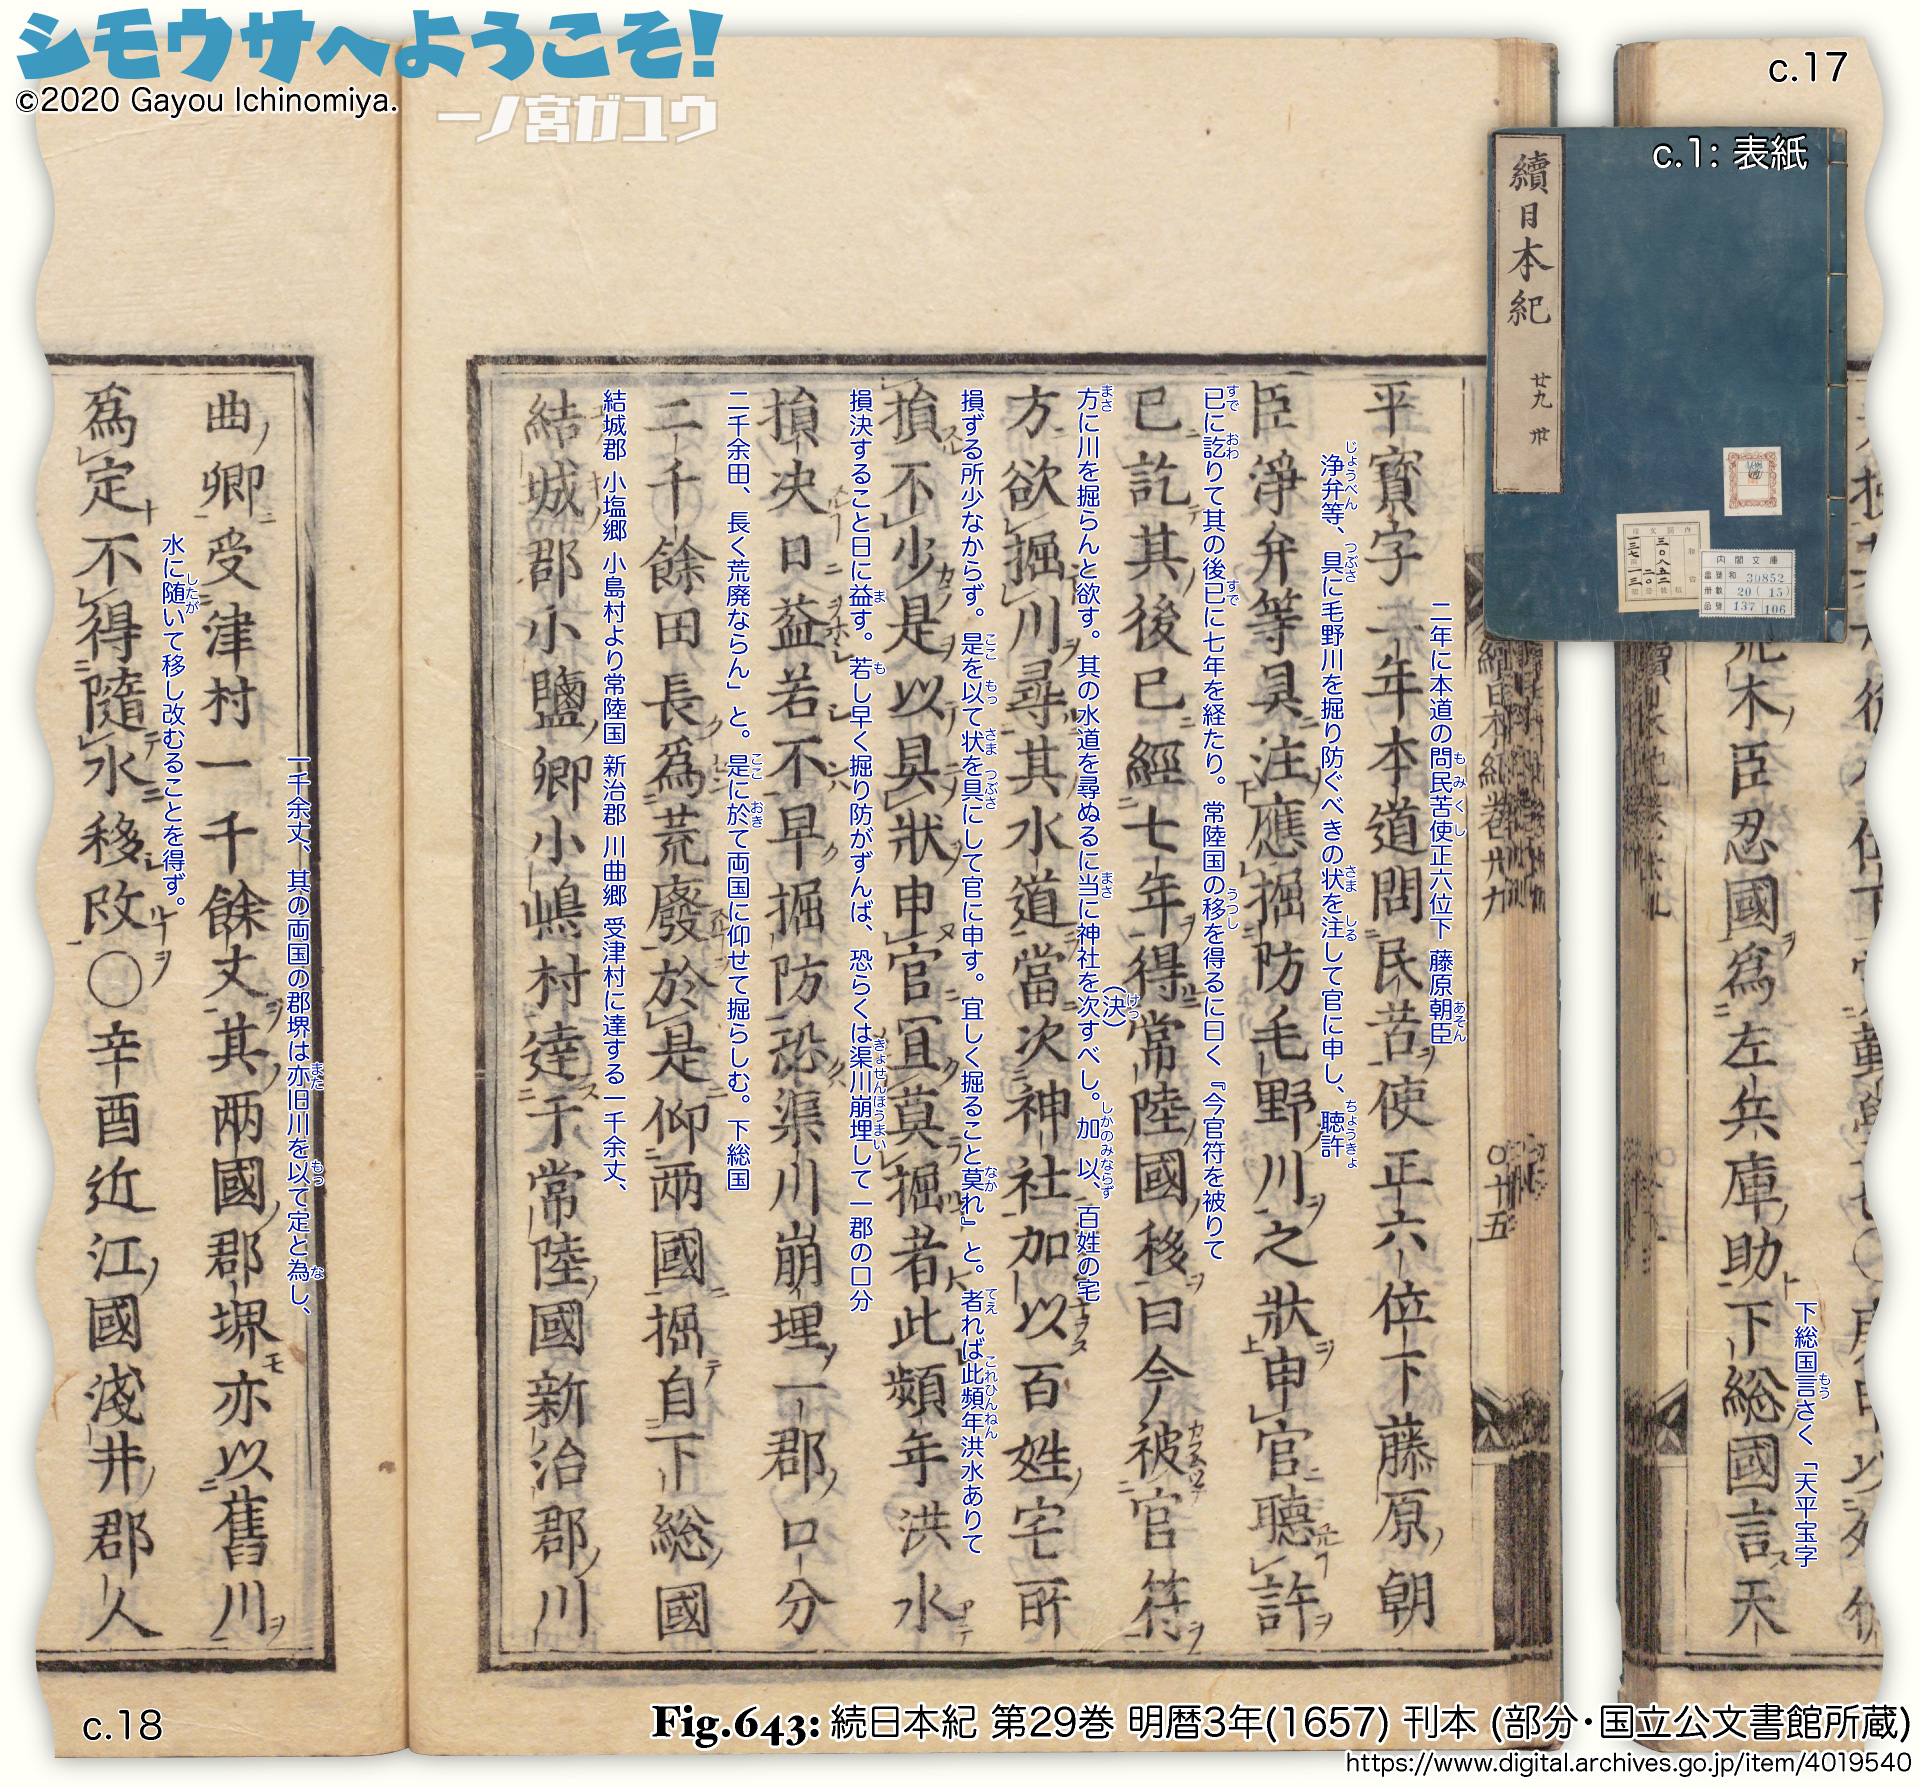 シモウサへようこそ!
©2020 Gayou Ichinomiya.
一ノ宮ガユウ
c.17
c.1: 表紙
續日本紀
廿九 卅
內閣文庫
番號 和 30852
冊數 20(15)
函號 137 106
下総国言さく「天平宝字
もう
木臣忍國爲左兵庫助下総國言天
二年に本道の問民苦使正六位下 藤原朝臣
もみくし あそん
平寶字二年本道問民苦使正六位下藤原朝
浄弁等、具に毛野川を掘り防ぐべきの状を注して官に申し、聴許
じょうべん つぶさ さま しる ちょうきょ
臣淨弁等具注應掘防毛野川之狀申官聽許
已に訖りて其の後已に七年を経たり。常陸国の移を得るに曰く『今官符を被りて
すで おわ すで うつし
已訖其後已經七年得常陸國移曰今被官符
方に川を掘らんと欲す。其の水道を尋ぬるに当に神社を次すべし。加以、百姓の宅
まさ まさ (決) けっ しかのみならず
方欲掘川尋其水道當次神社加以百姓宅所
損ずる所少なからず。是を以て状を具にして官に申す。宜しく掘ること莫れ』と。者れば此頻年洪水ありて
ここ もっ さま つぶさ なか てえ これひんねん
損不少是以具狀申官宜莫掘者此頻年洪水
損決すること日に益す。若し早く掘り防がずんば、恐らくは渠川崩埋して一郡の口分
ま も きょせんほうまい
損决日益若不早掘防恐渠川崩埋一郡口分
二千余田、長く荒廃ならん」と。是に於て両国に仰せて掘らしむ。下総国
ここ おき
二千餘田長爲荒廢於是仰兩國掘自下総國
結城郡 小塩郷 小島村より常陸国 新治郡 川曲郷 受津村に達する一千余丈、
結城郡小鹽卿小嶋村達于常陸國新治郡川
續日本紀卷廿九
〇廿五
一千余丈、其の両国の郡堺は亦旧川を以て定と為し、
また もっ な
曲卿受津村一千餘丈其两國郡堺亦以舊川
水に随いて移し改むることを得ず。
したが
爲定不得隨水移改〇辛酉近江國淺井郡人
c.18
Fig.643: 続日本紀 第29巻 明暦3年(1657) 刊本 (部分・国立公文書館所蔵)
https://www.digital.archives.go.jp/item/4019540